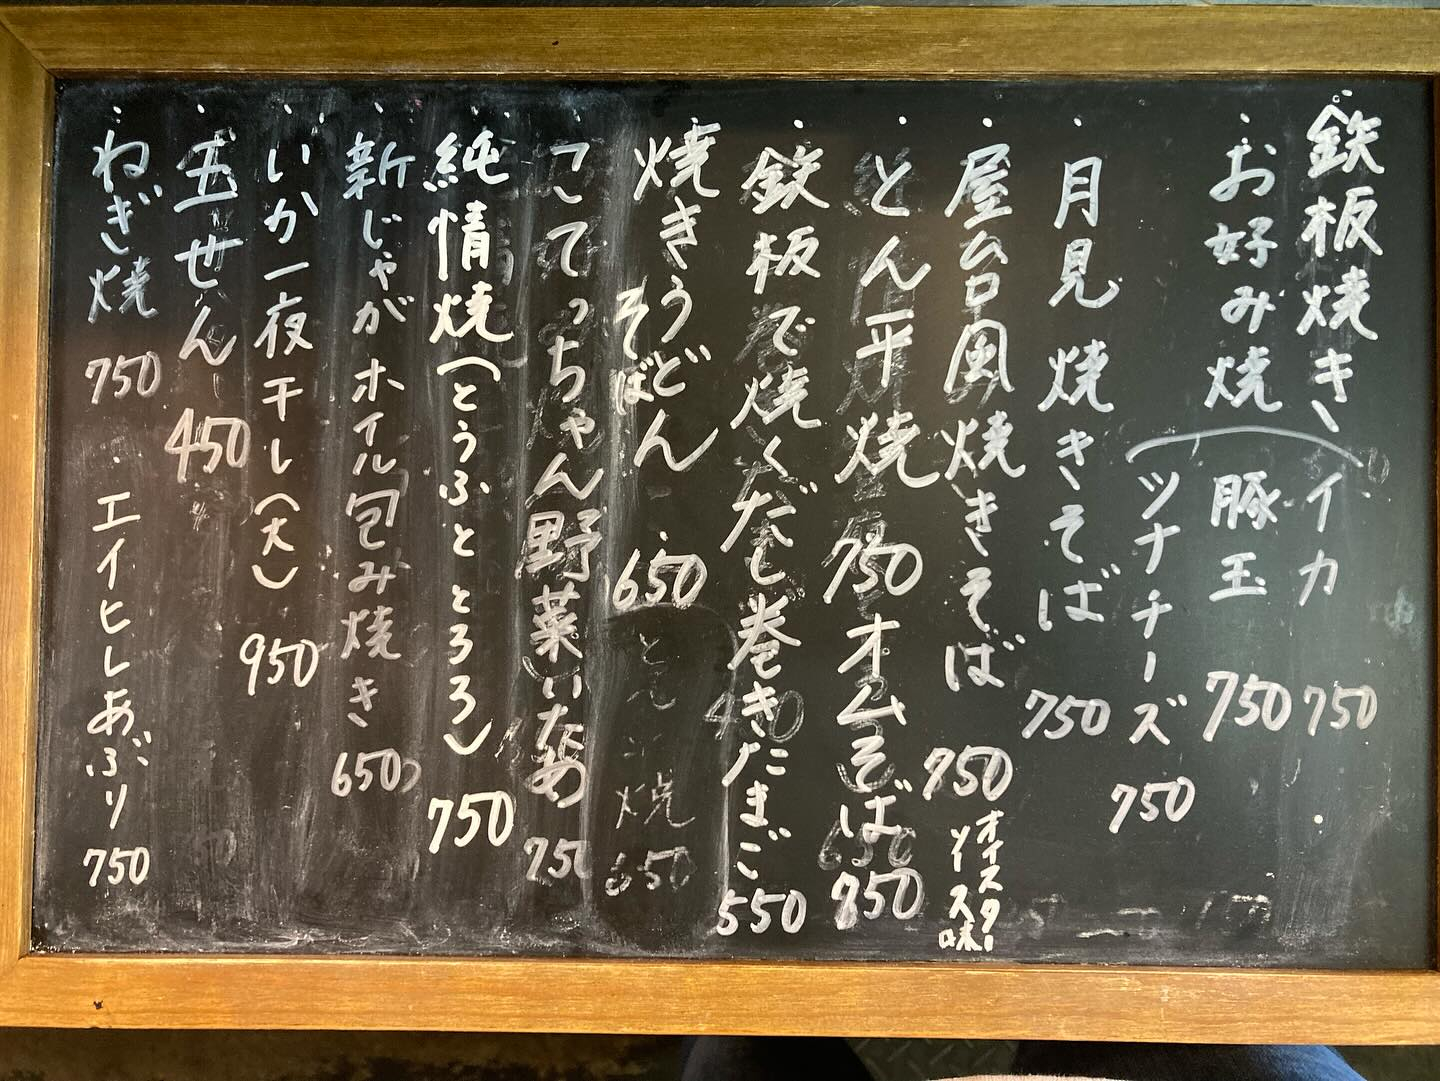 鉄板焼き
お好み焼
イカ 750
豚玉 750
ツナチーズ 750
月見焼きそば 750
屋台風焼きそば 750
オイスターソース味
とん平焼 750
オムそば 750
鉄板で焼くだし巻きたまご 550
焼きうどん 650
そば
こてっちゃん野菜いため 750
純情焼(とうふととろろ) 750
新じゃがホイル包み焼き 650
いか一夜干し(大) 950
玉せん 450
ねぎ焼 750
エイヒレあぶり 750